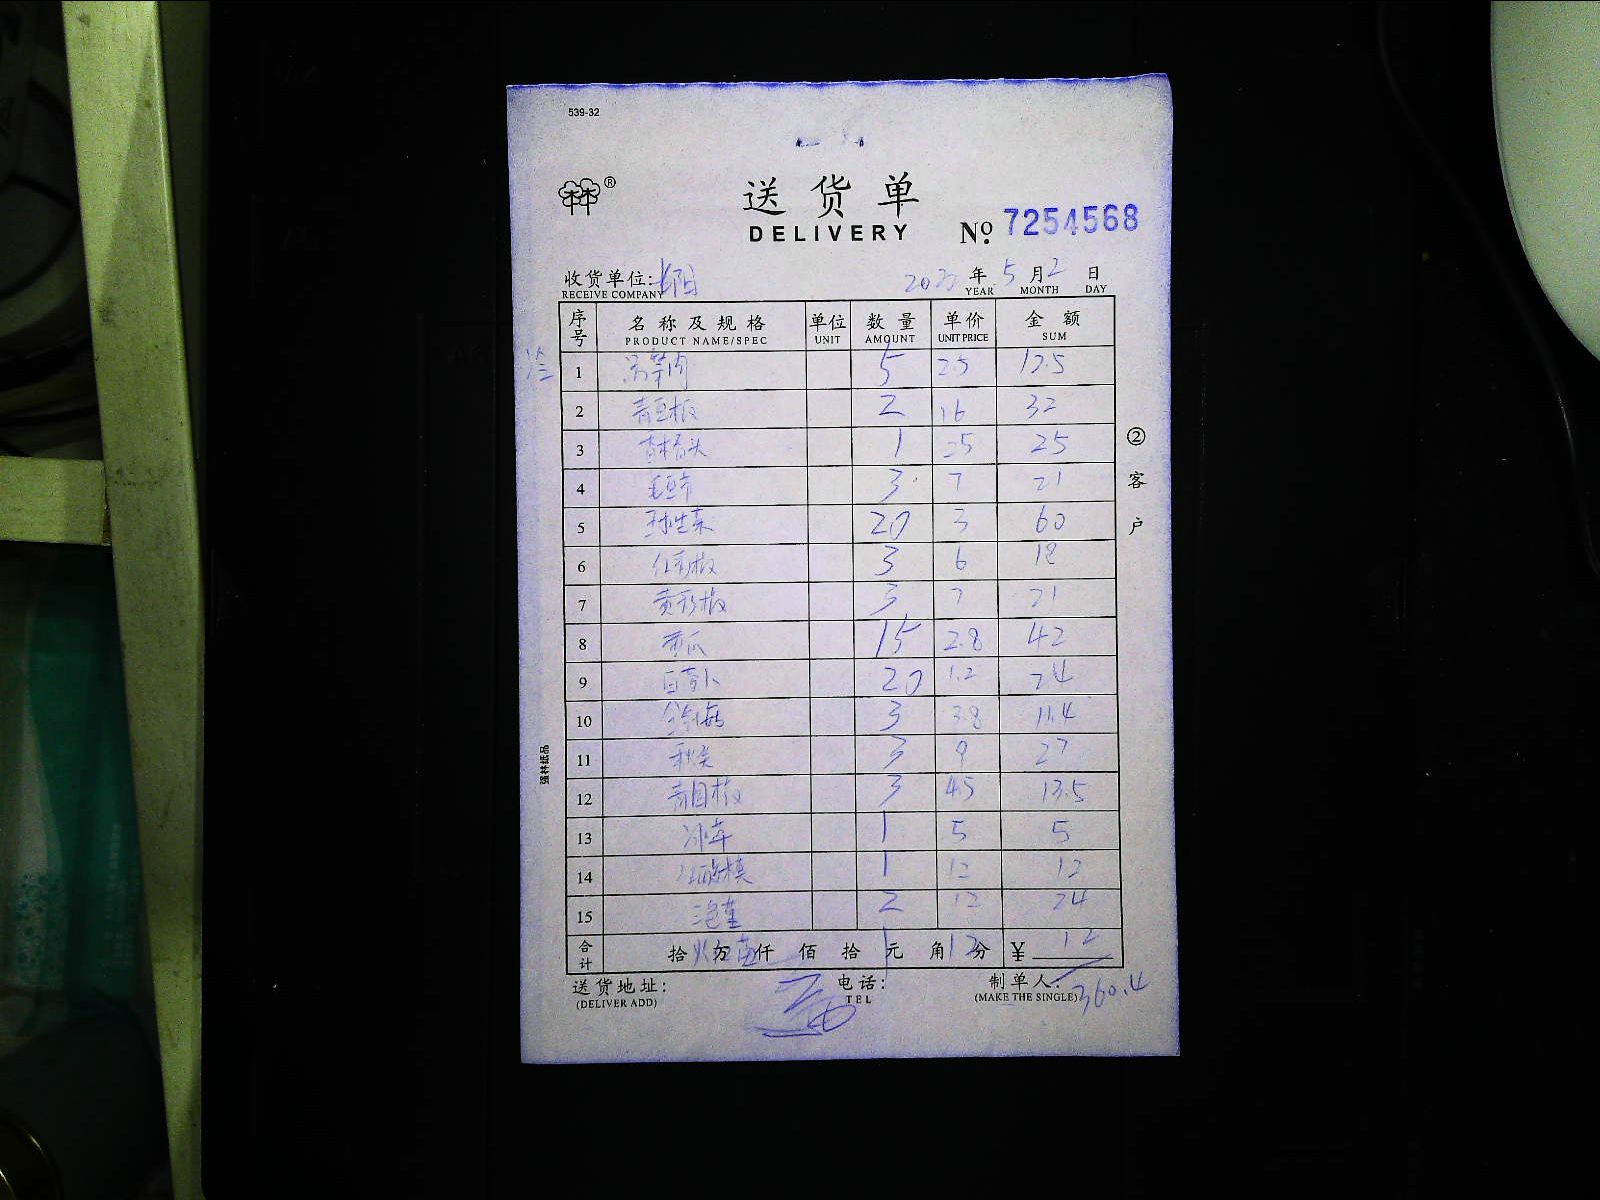 539-32
林®
送货单
DELIVERY No. 7254568
收货单位: 年 5 月 2 日
RECEIVE COMPANY YEAR MONTH DAY
序号 名称及规格 单位 数量 单价 金额
PRODUCT NAME/SPEC UNIT AMOUNT UNIT PRICE SUM
1 5 2.5 12.5
2 青豆板 2 16 32
3 1 25 25
4 3 7 21
5 球生菜 20 3 60
6 红彩椒 3 6 18
7 黄彩椒 3 7 21
8 15 2.8 42
9 白萝卜 20 1.2 24
10 3 3.8 11.4
11 秋葵 3 9 27
12 3 4.5 13.5
13 冰草 1 5 5
14 1 12 12
15 2 12 24
合计 拾 万 仟 佰 拾 1 元 角 12 分 ¥ 12
送货地址: 电话: 制单人:
(DELIVER ADD) TEL (MAKE THE SINGLE) 360.4
②客户
强林纸品